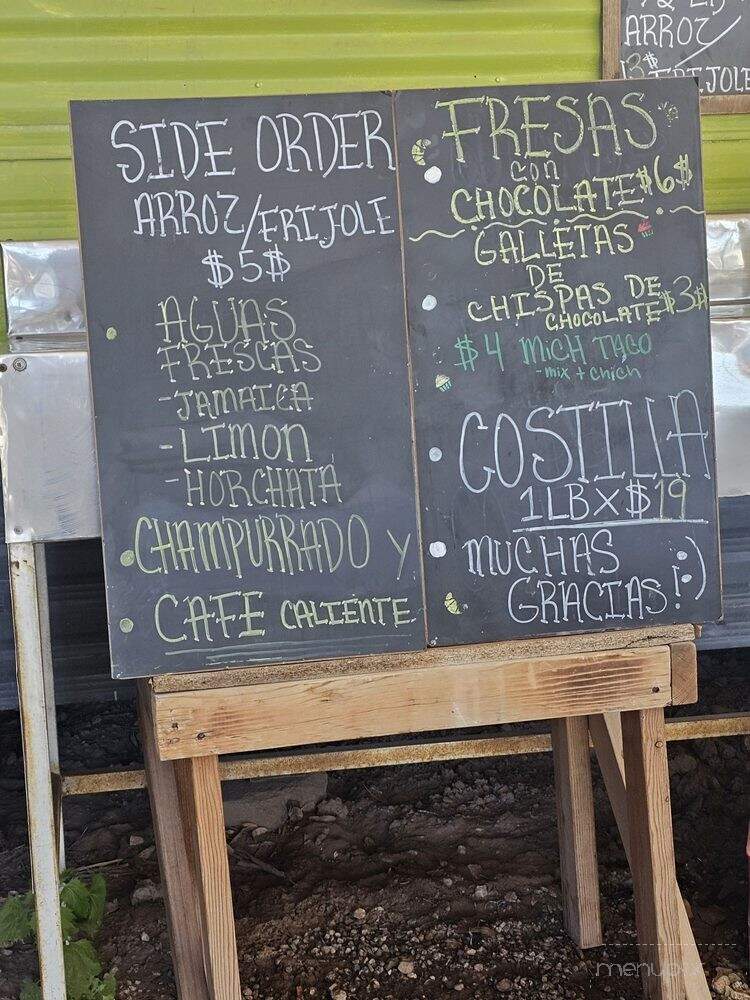 SIDE ORDER
ARROZ/FRIJOLE
$5$
AGUAS
FRESCAS
-JAMAICA
-LIMON
-HORCHATA
CHAMPURRADO Y
CAFE CALIENTE
FRESAS
con
CHOCOLATE $6$
GALLETAS
DE
CHISPAS DE
CHOCOLATE $3$
$4 MICH TACO
-mix + chich
COSTILLA
1LB X $19
MUCHAS
GRACIAS! :)
ARROZ/
3$
FRIJOLE
menupix